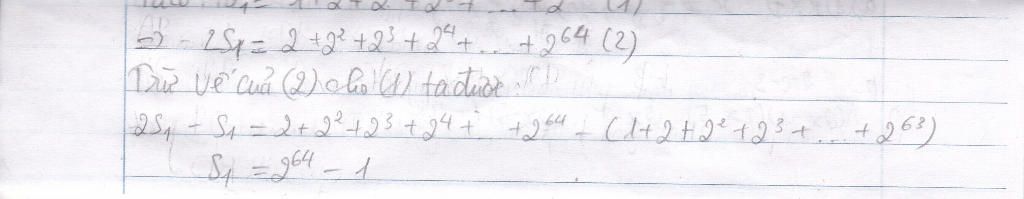 S₁ = 1 + 2 + 2² + 2³ + ... + 2 (1)
=> 2S₁ = 2 + 2² + 2³ + 2⁴ + ... + 2⁶⁴ (2)
Trừ vế của (2) cho (1) ta được:
2S₁ - S₁ = 2 + 2² + 2³ + 2⁴ + ... + 2⁶⁴ - (1 + 2 + 2² + 2³ + ... + 2⁶³)
S₁ = 2⁶⁴ - 1